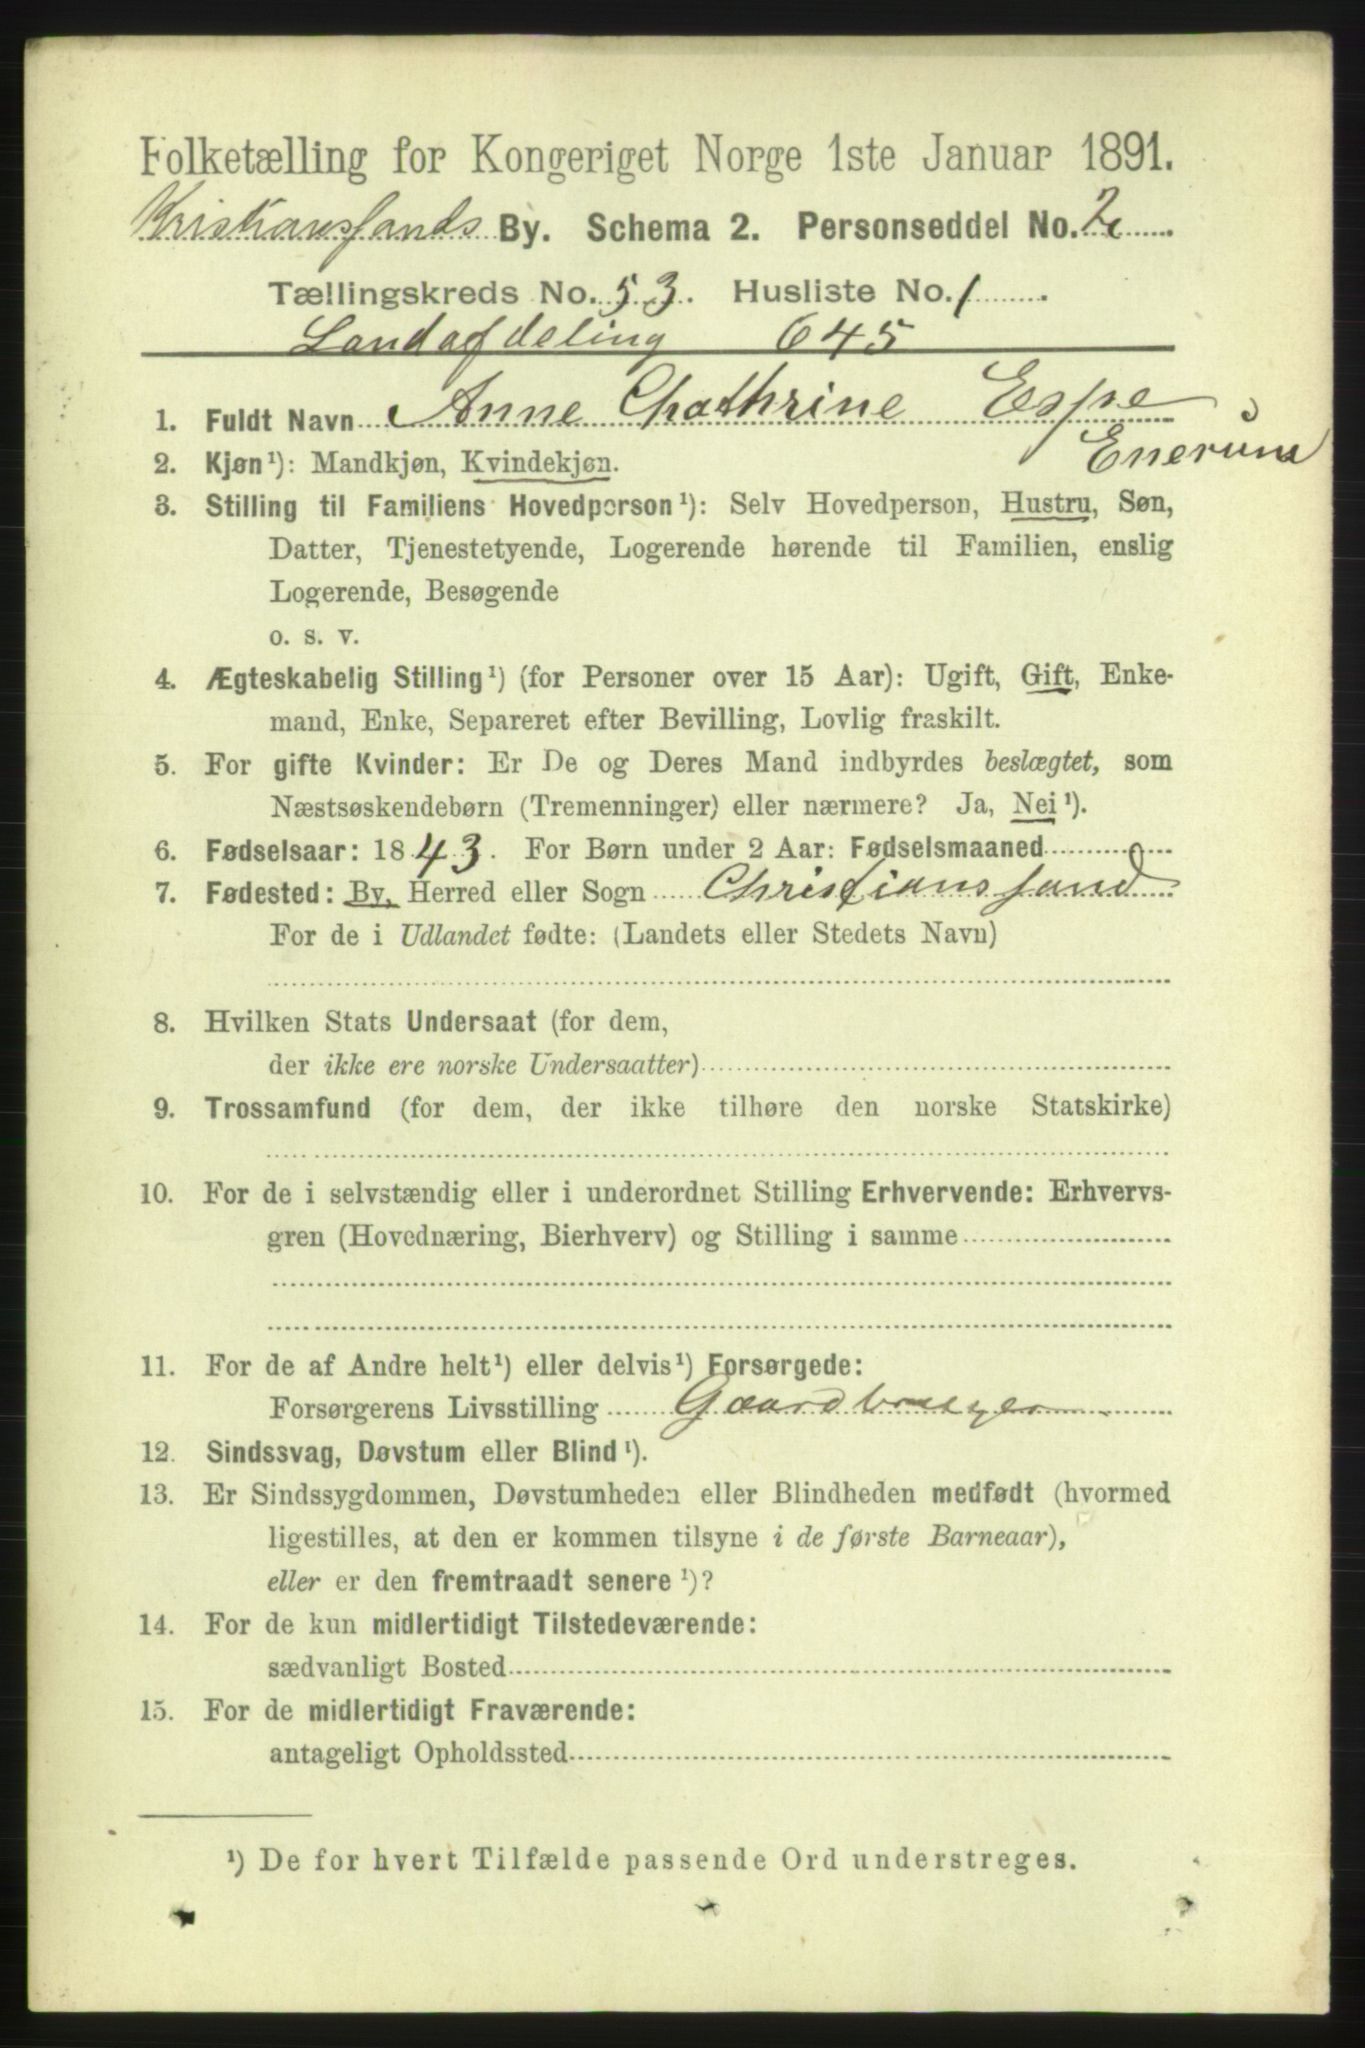 Folketælling for Kongeriget Norge 1ste Januar 1891.
Kristianssands By. Schema 2. Personseddel No. 2
Tællingskreds No. 53. Husliste No. 1
Landafdeling 645
1. Fuldt Navn Anne Chathrine Espe
2. Kjøn¹): Mandkjøn, Kvindekjøn.
3. Stilling til Familiens Hovedperson¹): Selv Hovedperson, Hustru, Søn,
Datter, Tjenestetyende, Logerende hørende til Familien, enslig
Logerende, Besøgende
o. s. v.
4. Ægteskabelig Stilling¹) (for Personer over 15 Aar): Ugift, Gift, Enke-
mand, Enke, Separeret efter Bevilling, Lovlig fraskilt.
5. For gifte Kvinder: Er De og Deres Mand indbyrdes beslægtet, som
Næstsøskendebørn (Tremenninger) eller nærmere? Ja, Nei¹).
6. Fødselsaar: 1843. For Børn under 2 Aar: Fødselsmaaned
7. Fødested: By, Herred eller Sogn Christianssand
For de i Udlandet fødte: (Landets eller Stedets Navn)
8. Hvilken Stats Undersaat (for dem,
der ikke ere norske Undersaatter)
9. Trossamfund (for dem, der ikke tilhøre den norske Statskirke)
10. For de i selvstændig eller i underordnet Stilling Erhvervende: Erhvervs-
gren (Hovednæring, Bierhverv) og Stilling i samme
11. For de af Andre helt¹) eller delvis¹) Forsørgede:
Forsørgerens Livsstilling Gaardbruger
12. Sindssvag, Døvstum eller Blind¹).
13. Er Sindssygdommen, Døvstumheden eller Blindheden medfødt (hvormed
ligestilles, at den er kommen tilsyne i de første Barneaar),
eller er den fremtraadt senere¹)?
14. For de kun midlertidigt Tilstedeværende:
sædvanligt Bosted
15. For de midlertidigt Fraværende:
antageligt Opholdssted
¹) De for hvert Tilfælde passende Ord understreges.